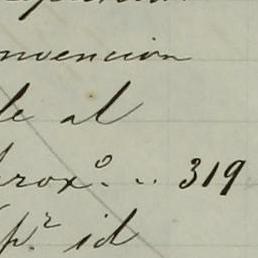 nvencion
le al
prox.º .. 319
p.r id